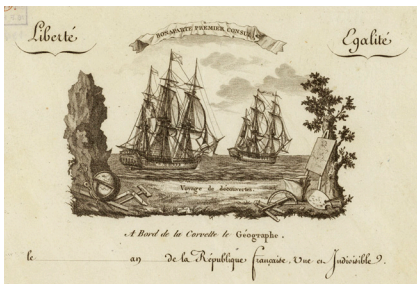 Liberté
BONAPARTE PREMIER CONSUL
Egalité
Voyage de découvertes.
A Bord de la Corvette le Géographe.
le an de la République française. Une et Indivisible.